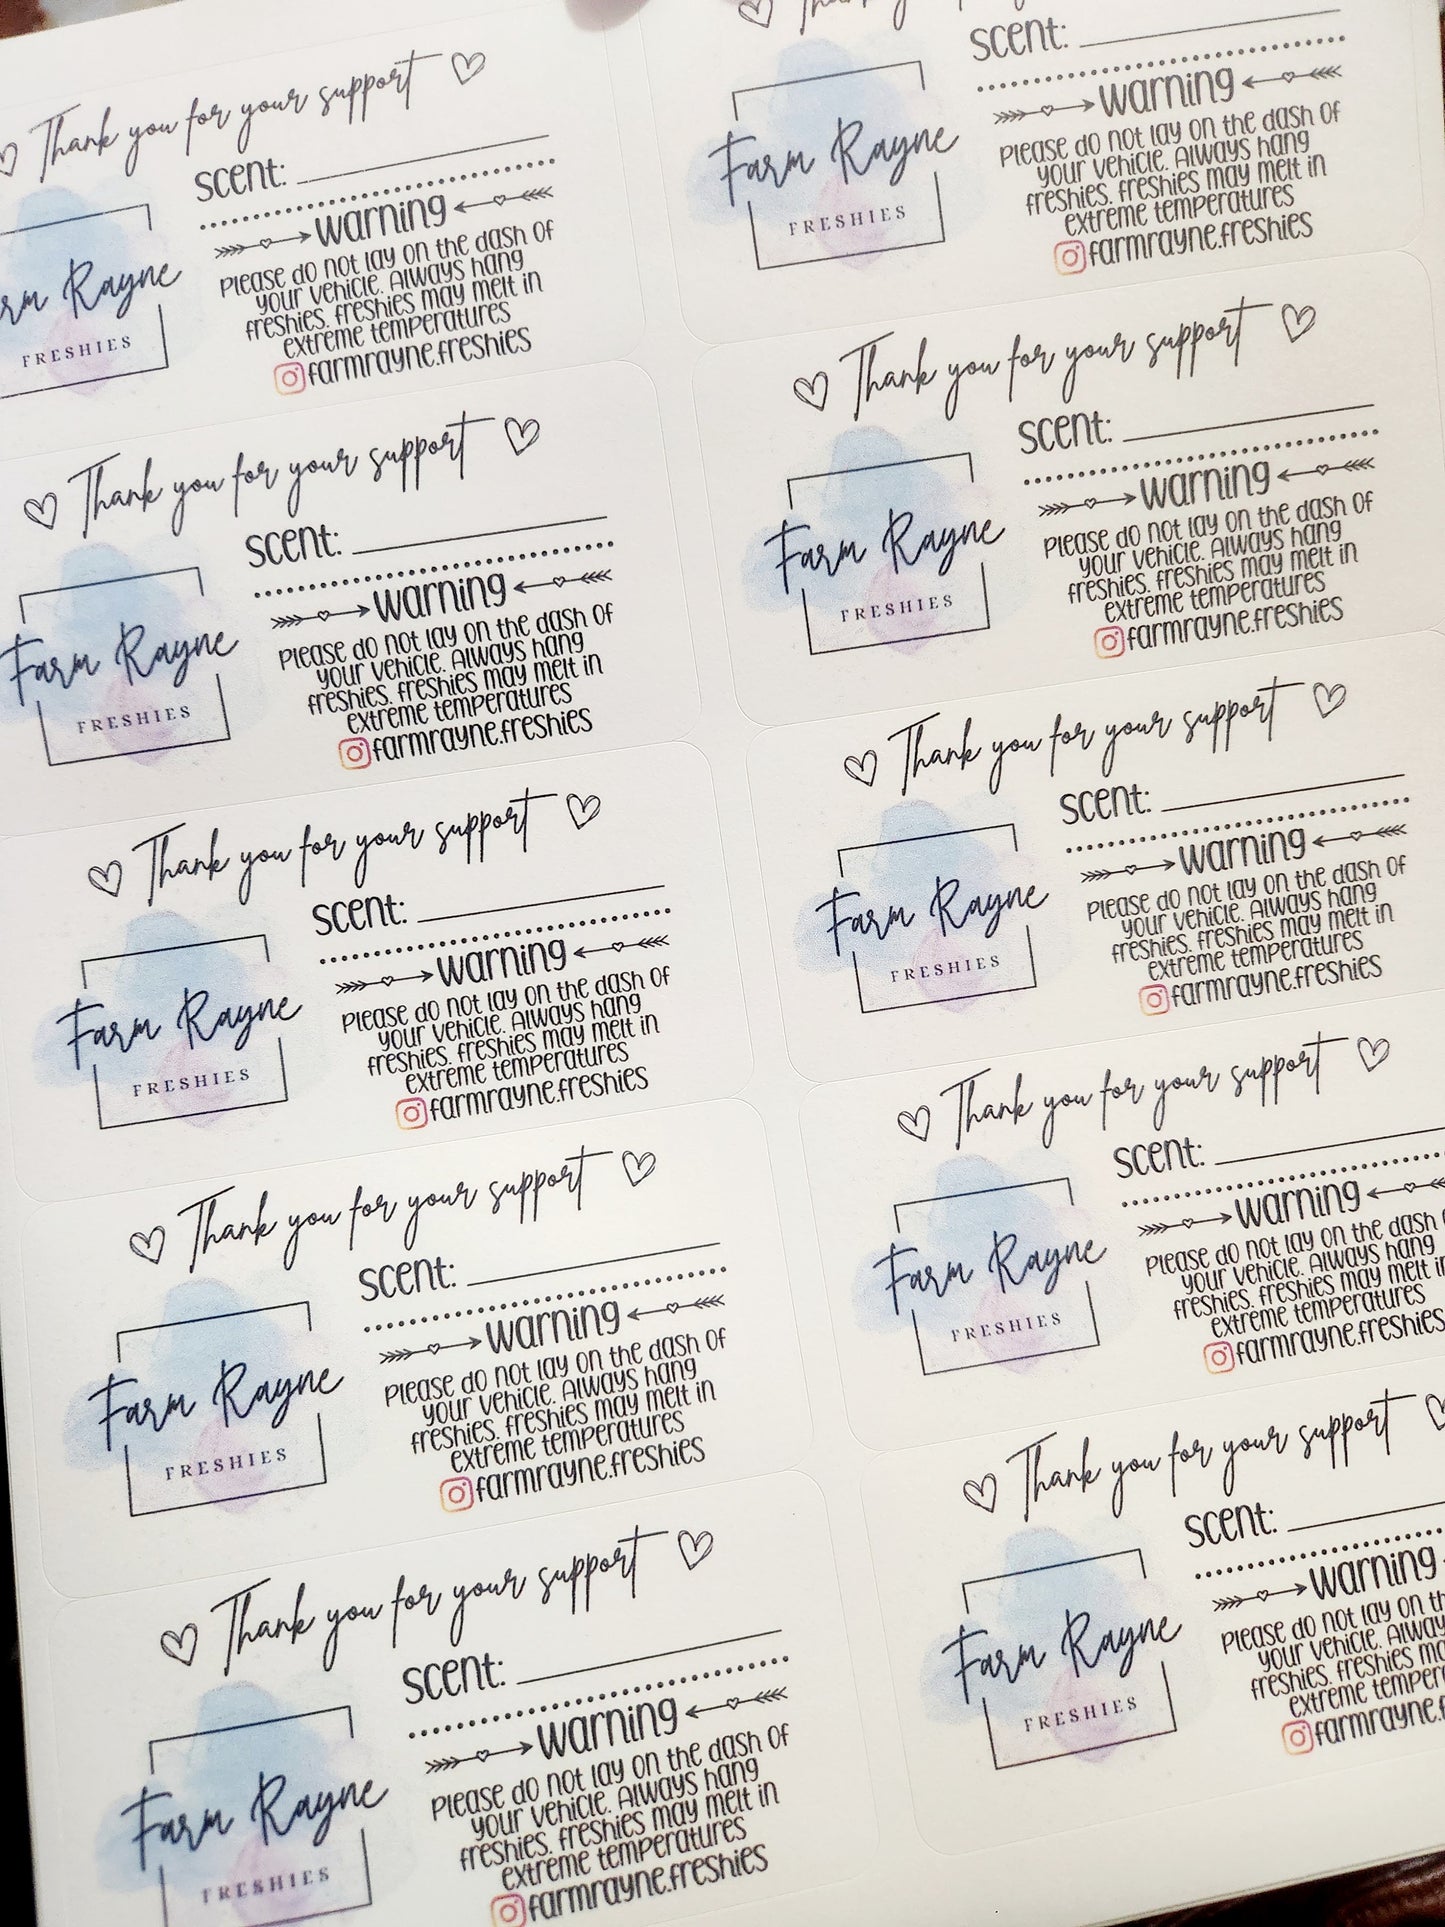 Thank you for your support
scent:
warning
Please do not lay on the dash of
your vehicle. Always hang
freshies. freshies may melt in
extreme temperatures
farmrayne.freshies
Rayne
FRESHIES
Thank you for your support
scent:
warning
Please do not lay on the dash of
your vehicle. Always hang
freshies. freshies may melt in
extreme temperatures
farmrayne.freshies
Farm Rayne
FRESHIES
Thank you for your support
scent:
warning
Please do not lay on the dash of
your vehicle. Always hang
freshies. freshies may melt in
extreme temperatures
farmrayne.freshies
Farm Rayne
FRESHIES
Thank you for your support
scent:
warning
Please do not lay on the dash of
your vehicle. Always hang
freshies. freshies may melt in
extreme temperatures
farmrayne.freshies
Farm Rayne
FRESHIES
Thank you for your support
scent:
warning
Please do not lay on the dash of
your vehicle. Always hang
freshies. freshies may melt in
extreme temperatures
farmrayne.freshies
Farm Rayne
FRESHIES
scent:
warning
Please do not lay on the dash of
your vehicle. Always hang
freshies. freshies may melt in
extreme temperatures
farmrayne.freshies
Farm Rayne
FRESHIES
Thank you for your support
scent:
warning
Please do not lay on the dash of
your vehicle. Always hang
freshies. freshies may melt in
extreme temperatures
farmrayne.freshies
Farm Rayne
FRESHIES
Thank you for your support
scent:
warning
Please do not lay on the dash of
your vehicle. Always hang
freshies. freshies may melt in
extreme temperatures
farmrayne.freshies
Farm Rayne
FRESHIES
Thank you for your support
scent:
warning
Please do not lay on the dash
your vehicle. Always hang
freshies. freshies may melt in
extreme temperatures
farmrayne.freshies
Farm Rayne
FRESHIES
Thank you for your support
scent:
warning
Please do not lay on
your vehicle.
freshies. freshies
extreme
Farm Rayne
FRESHIES